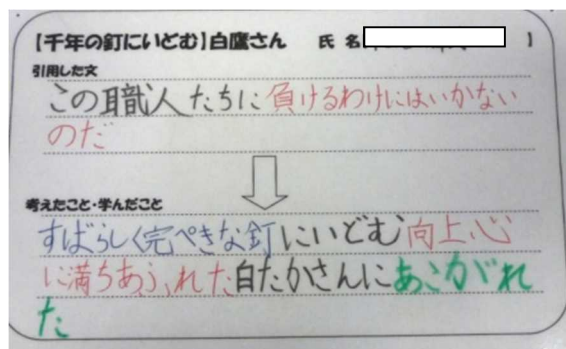 【千年の釘にいどむ】白鷹さん 氏名 】
引用した文
この職人たちに負けるわけにはいかない
のだ
考えたこと・学んだこと
すばらしく完ぺきな釘にいどむ向上心
に満ちあふれた白たかさんにあこがれ
た